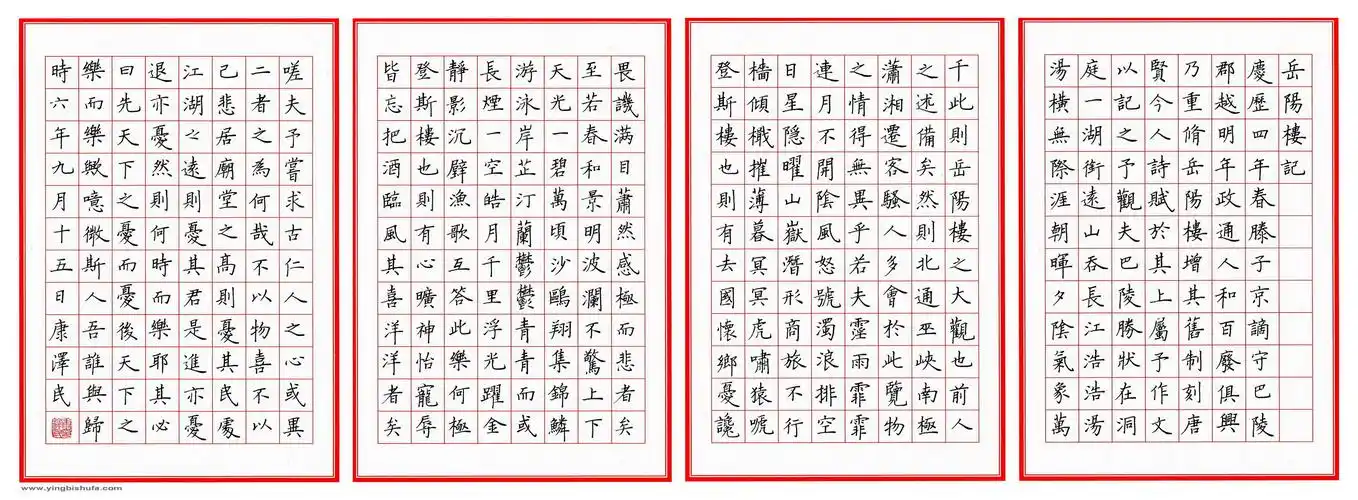 岳陽樓記
慶歷四年春滕子京謫守巴陵
郡越明年政通人和百廢俱興
乃重脩岳陽樓增其舊制刻唐
賢今人詩賦於其上屬予作文
以記之予觀夫巴陵勝狀在洞
庭一湖銜遠山吞長江浩浩湯
湯橫無際涯朝暉夕陰氣象萬
千此則岳陽樓之大觀也前人
之述備矣然則北通巫峽南極
瀟湘遷客騷人多會於此覽物
之情得無異乎若夫霪雨霏霏
連月不開陰風怒號濁浪排空
日星隱曜山嶽潛形商旅不行
檣傾檝摧薄暮冥冥虎嘯猿嗁
登斯樓也則有去國懷鄉憂讒
畏譏滿目蕭然感極而悲者矣
至若春和景明波瀾不驚上下
天光一碧萬頃沙鷗翔集錦鱗
游泳岸芷汀蘭鬱鬱青青而或
長煙一空皓月千里浮光躍金
靜影沉璧漁歌互答此樂何極
登斯樓也則有心曠神怡寵辱
皆忘把酒臨風其喜洋洋者矣
嗟夫予嘗求古仁人之心或異
二者之為何哉不以物喜不以
己悲居廟堂之高則憂其民處
江湖之遠則憂其君是進亦憂
退亦憂然則何時而樂耶其必
曰先天下之憂而憂後天下之
樂而樂歟噫微斯人吾誰與歸
時六年九月十五日康澤民
www.yingbishufa.com